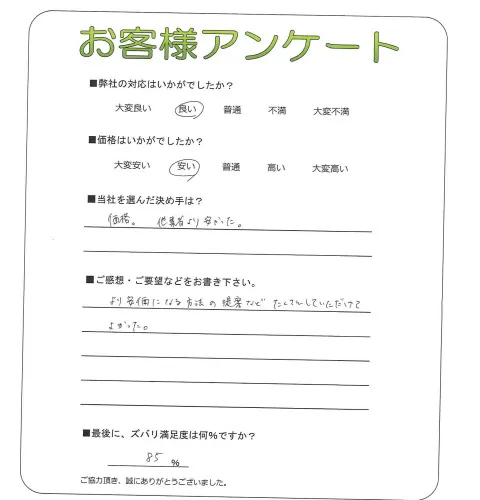 お客様アンケート
■弊社の対応はいかがでしたか？
大変良い 良い 普通 不満 大変不満
■価格はいかがでしたか？
大変安い 安い 普通 高い 大変高い
■当社を選んだ決め手は？
価格。 他業者より安かった。
■ご感想・ご要望などをお書き下さい。
より安価になる方法の提案など たくさんしていただけて
よかった。
■最後に、ズバリ満足度は何%ですか？
85 %
ご協力頂き、誠にありがとうございました。